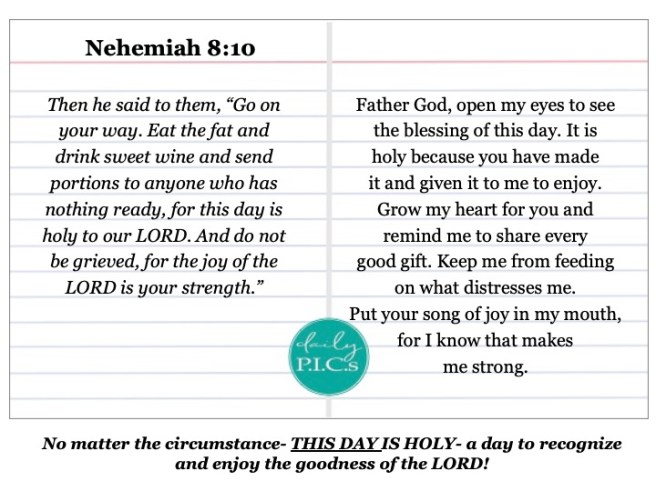 Nehemiah 8:10
Then he said to them, “Go on
your way. Eat the fat and
drink sweet wine and send
portions to anyone who has
nothing ready, for this day is
holy to our LORD. And do not
be grieved, for the joy of the
LORD is your strength.”
Father God, open my eyes to see
the blessing of this day. It is
holy because you have made
it and given it to me to enjoy.
Grow my heart for you and
remind me to share every
good gift. Keep me from feeding
on what distresses me.
Put your song of joy in my mouth,
for I know that makes
me strong.
daily
P.I.C.s
No matter the circumstance- THIS DAY IS HOLY- a day to recognize
and enjoy the goodness of the LORD!